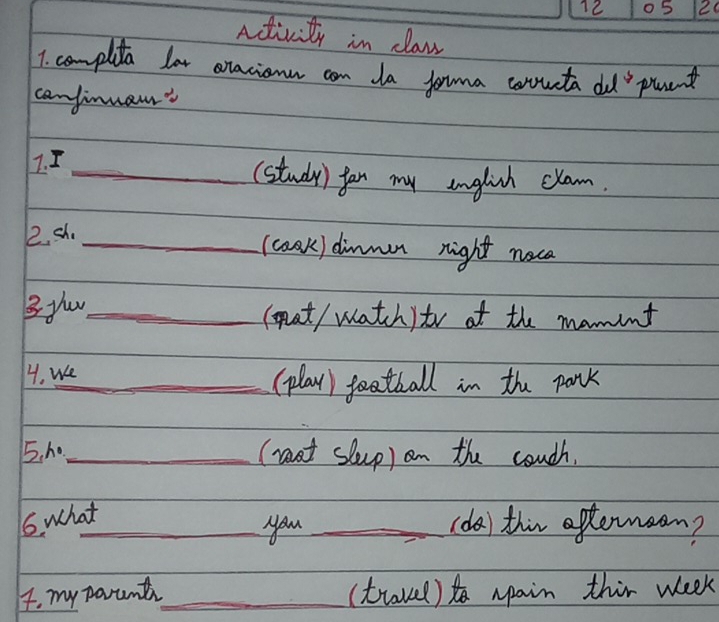 12 05 2
Activity in class
1. completa las oraciones con la forma correcta del "present
continuous"
1. I ________ (study) for my english exam.
2. she ________ (cook) dinner right now
3. They ________ (not/watch) tv at the moment
4. We ________ (play) football in the park
5. he ________ (not sleep) on the couch.
6. What ________ you ________ (do) this afternoon?
7. my parents ________ (travel) to spain this week